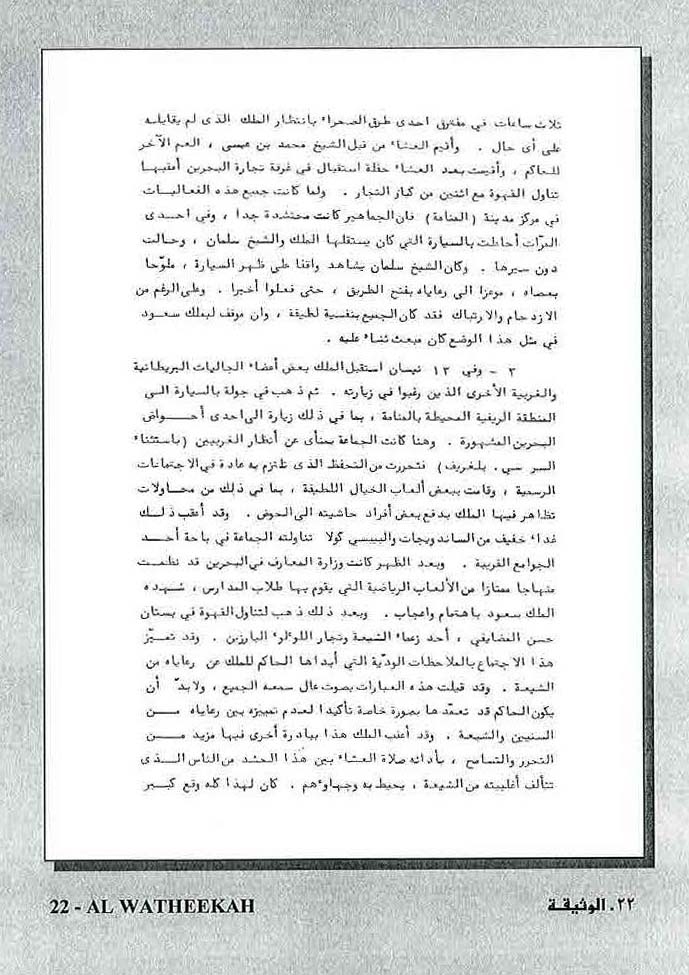 ثلاث ساعات في مفترق احدى طرق الصحراء بانتظار الملك الذى لم يقابله
على أى حال . وأقيم العشاء من قبل الشيخ محمد بن عيسى ، العم الآخر
للحاكم ، وأقيمت بعد العشاء حفلة استقبال في غرفة تجارة البحرين أعقبها
تناول القهوة مع اثنين من كبار التجار . ولما كانت جميع هذه الفعاليات
في مركز مدينة (المنامة) فان الجماهير كانت محتشدة جدا ، وفي احدى
المرّات أحاطت بالسيارة التي كان يستقلها الملك والشيخ سلمان ، وحالت
دون سيرها . وكان الشيخ سلمان يشاهد واقفا على ظهر السيارة ، ملوّحا
بعصاه ، موعزا الى رعاياه بفتح الطريق ، حتى فعلوا أخيرا . وعلى الرغم من
الازدحام والارتباك فقد كان الجميع بنفسية لطيفة ، وان موقف الملك سعود
في مثل هذا الوضع كان مبعث ثناء عليه .
٣ - وفي ١٣ نيسان استقبل الملك بعض أعضاء الجاليات البريطانية
والغربية الأخرى الذين رغبوا في زيارته . ثم ذهب في جولة بالسيارة الى
المنطقة الريفية المحيطة بالمنامة ، بما في ذلك زيارة الى احدى أحواض
البحرين المشهورة . وهنا كانت الجماعة بمنأى عن أنظار الغربيين (باستثناء
السر سي. بلغريف) فتحررت من التحفظ الذى تلتزم به عادة في الاجتماعات
الرسمية ، وقامت ببعض ألعاب الخيال اللطيفة ، بما في ذلك من محاولات
تظاهر فيها الملك بدفع بعض أفراد حاشيته الى الحوض . وقد أعقب ذلك
غداء خفيف من الساندويجات والبيبسي كولا تناولته الجماعة في باحة أحد
الجوامع القريبة . وبعد الظهر كانت وزارة المعارف في البحرين قد نظمت
منهاجا ممتازا من الألعاب الرياضية التي يقوم بها طلاب المدارس ، شهده
الملك سعود باهتمام واعجاب . وبعد ذلك ذهب لتناول القهوة في بستان
حسن ، أحد زعماء الشيعة وتجار اللوٴلوٴ البارزين . وقد تميّز
هذا الاجتماع بالملاحظات الودّية التي أبداها الحاكم للملك عن رعاياه من
الشيعة . وقد قيلت هذه العبارات بصوت عال سمعه الجميع ، ولابدّ أن
يكون الحاكم قد تعمّدها بصورة خاصة تأكيدا لعدم تمييزه بين رعاياه من
السنيين والشيعة . وقد أعقب الملك هذا ببادرة أخرى فيها مزيد من
التحرر والتسامح ، بأدائه صلاة العشاء بين هذا الحشد من الناس الذى
تتألف أغلبيته من الشيعة ، يحيط به وجهاوٴهم . كان لهذا كله وقع كبير
22 - AL WATHEEKAH
٢٢ . الوثيقة